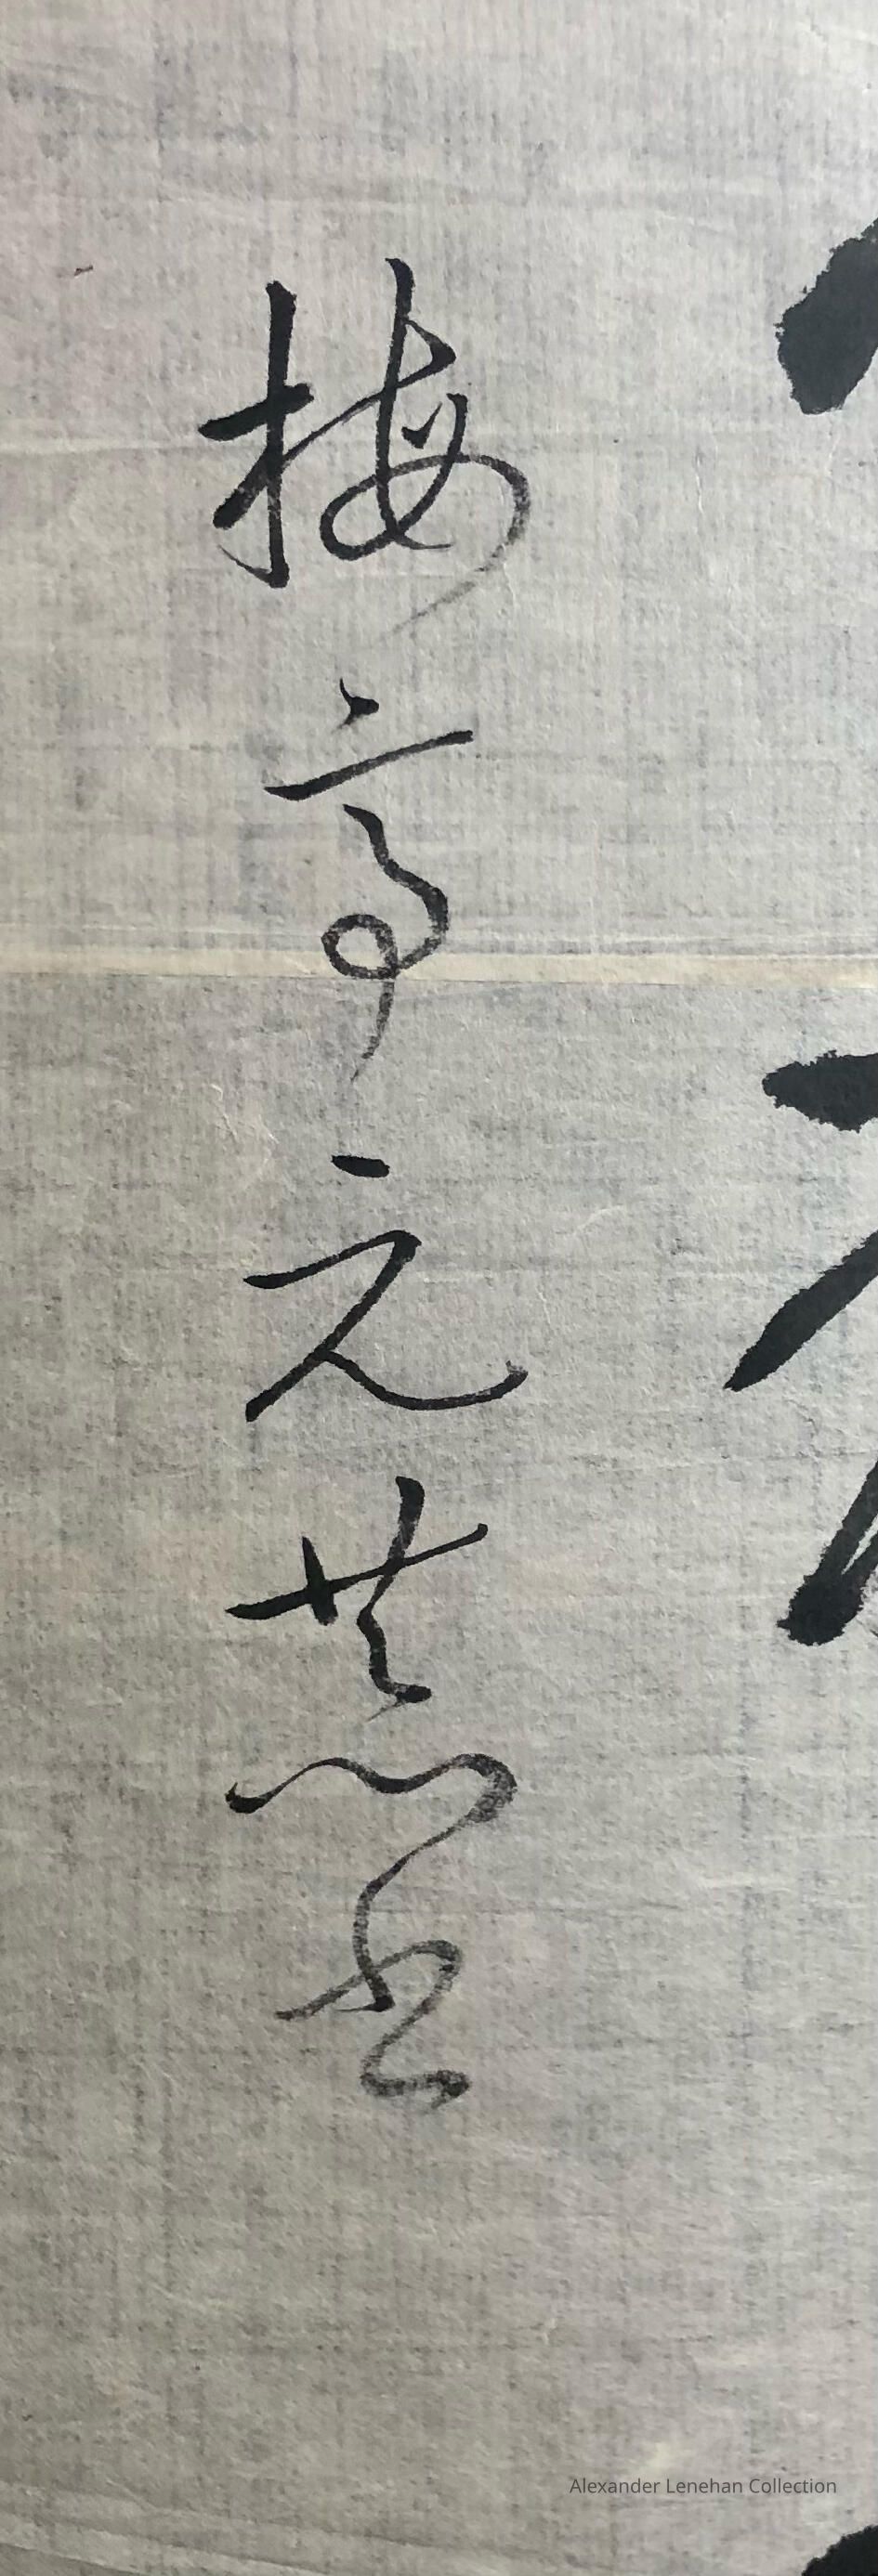 梅亭元書
Alexander Lenehan Collection